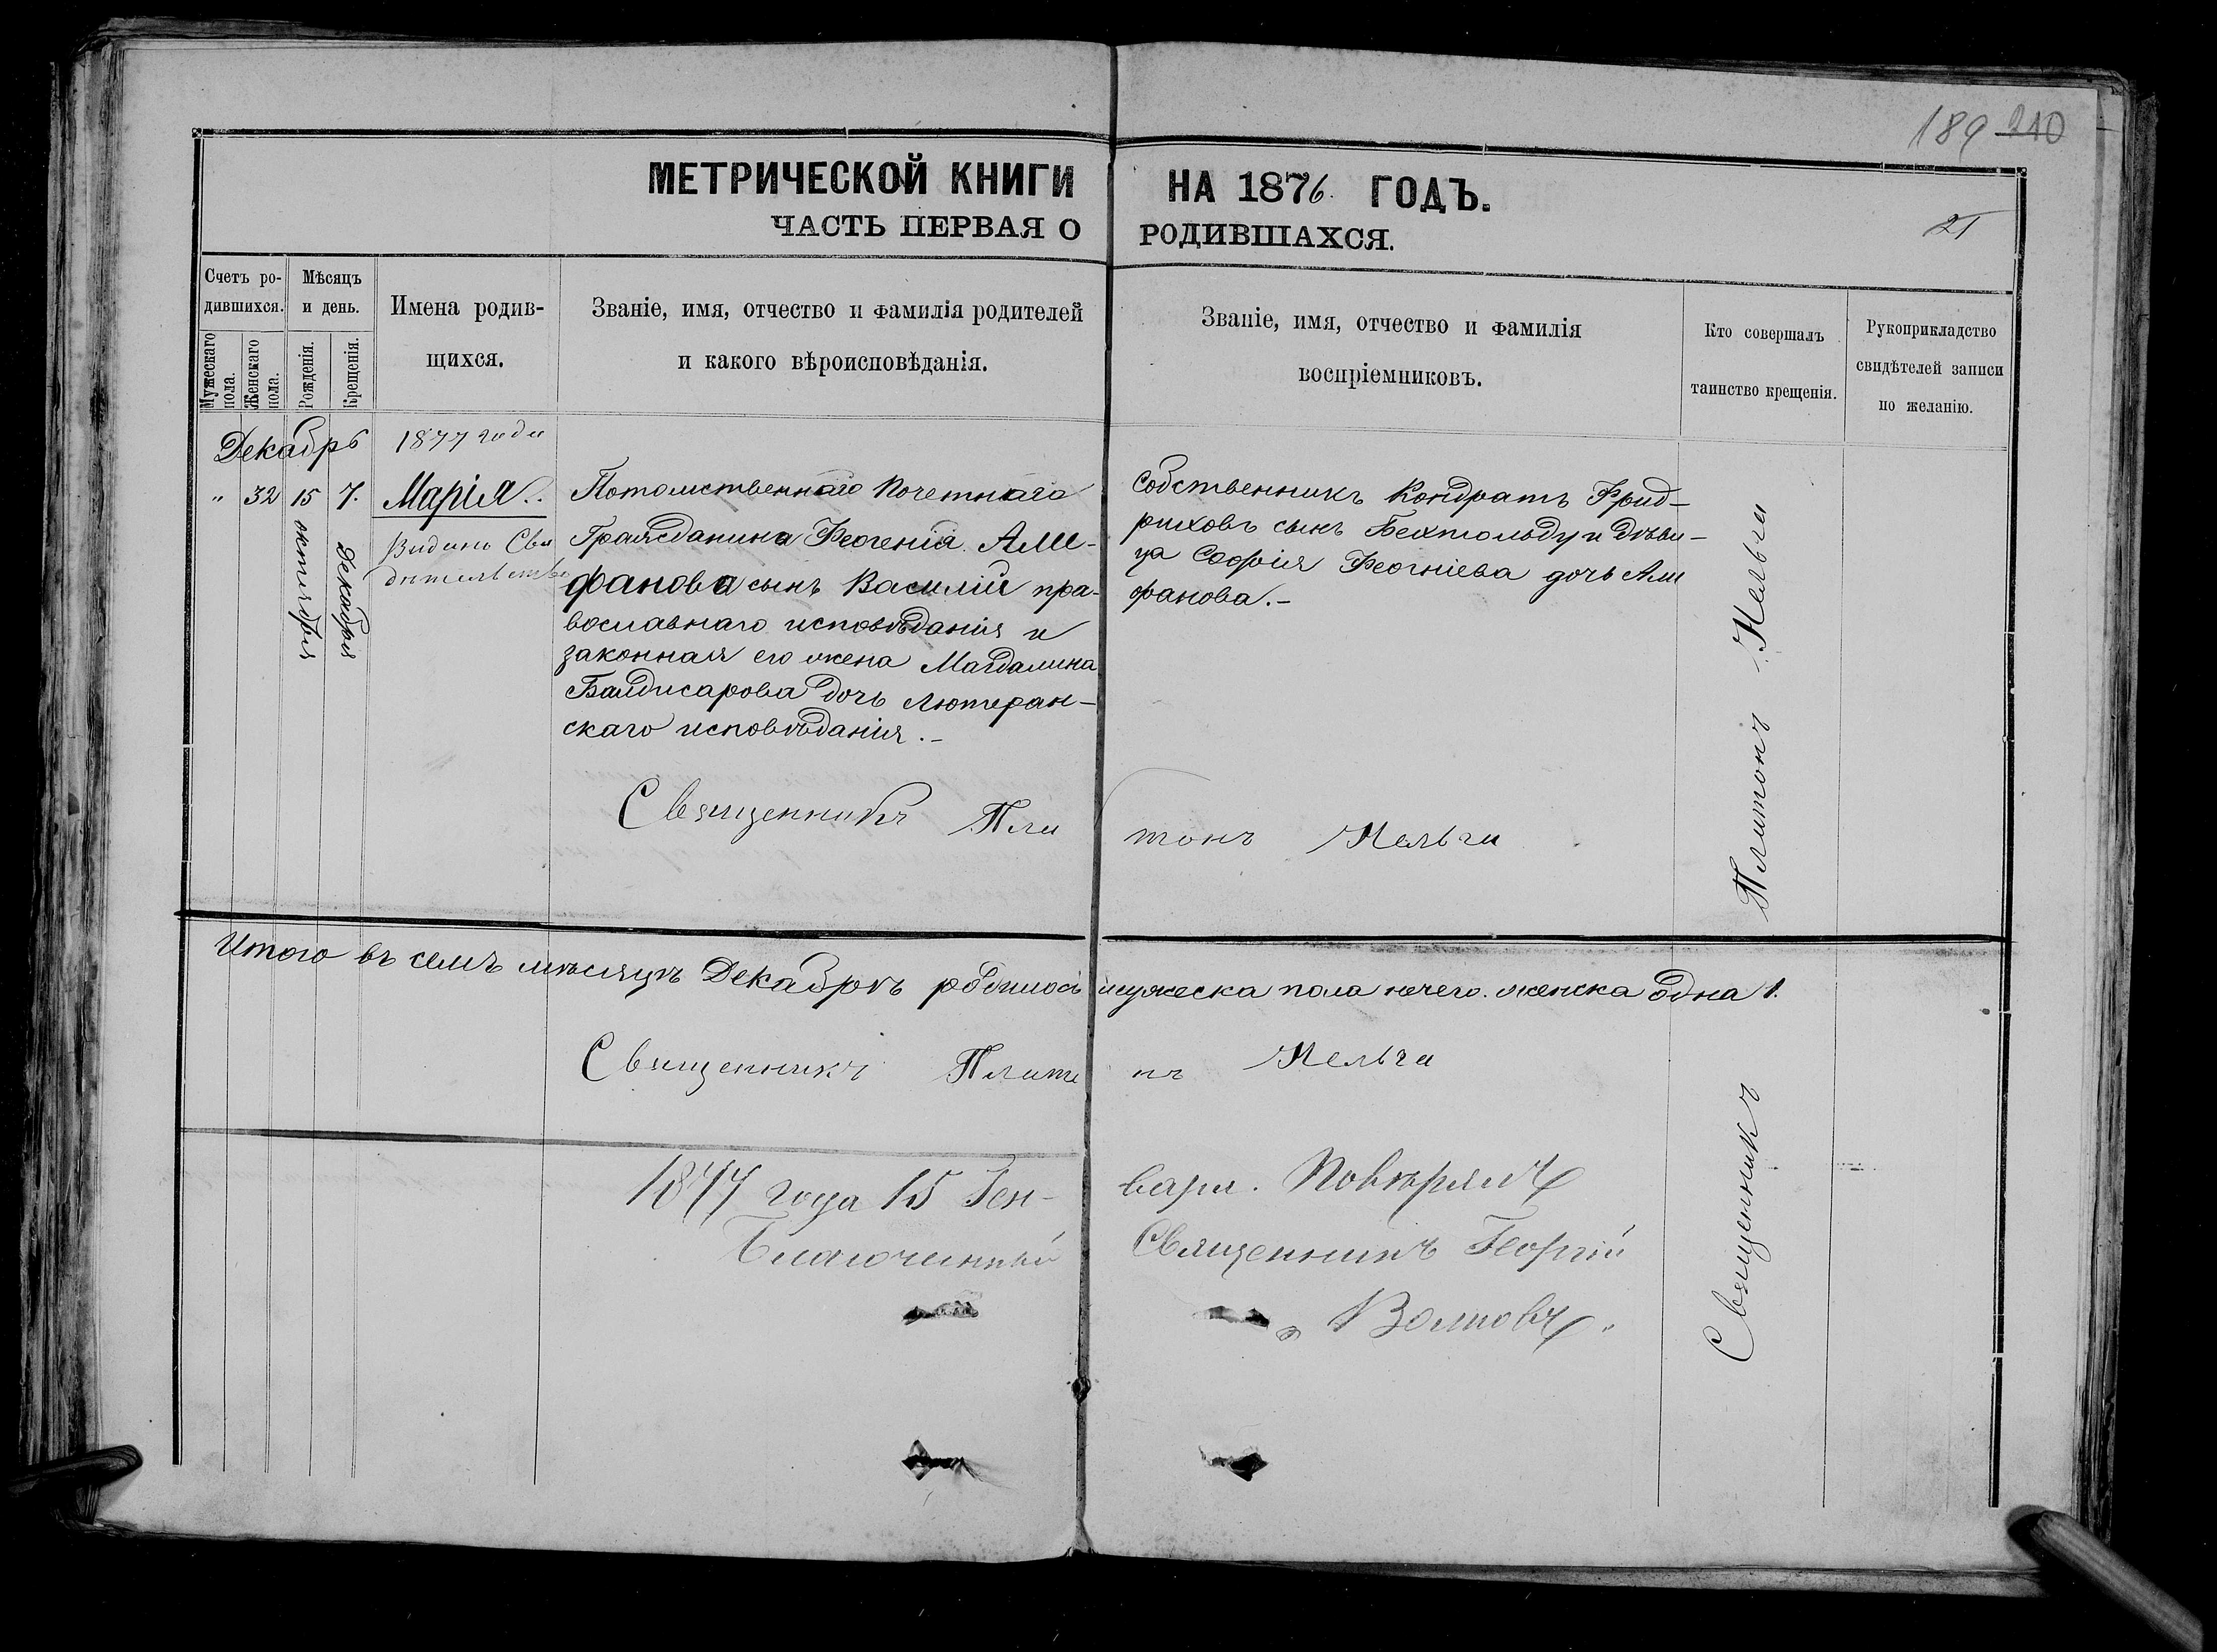 189 210
МЕТРИЧЕСКОЙ КНИГИ НА 1876. ГОДЪ.
ЧАСТЬ ПЕРВАЯ О РОДИВШАХСЯ.
21
Счетъ ро-
дившихся.
Мужескаго пола.
Женскаго пола.
Мѣсяцъ
и день.
Рожденія.
Крещенія.
Имена родив-
щихся.
Званіе, имя, отчество и фамилія родителей
и какого вѣроисповѣданія.
Званіе, имя, отчество и фамилія
воспріемниковъ.
Кто совершалъ
таинство крещенія.
Рукоприкладство
свидѣтелей записи
по желанію.
Декабрь
1877 года
" 32 15 7. Марія.
октября
Декабря
Выдано Сви
дѣтельство
Потомственнаго Почетнаго
Гражданина Феогенія Али-
фанова сынъ Василій пра-
вославнаго исповѣданія и
законная его жена Магдалина
Балдисарова дочь Лютеран-
скаго исповѣданія.-
Собственникъ Кондратъ Фрид-
риховъ сынъ Бехтольду и дѣви-
ца Софія Феогніева дочь Али
фанова.-
Священникъ Платонъ Нельги
Платонъ Нельги
Итого въ семъ мѣсяцѣ Декабрѣ родилось мужеска пола нечего. женска одна 1.
Священникъ Платонъ Нельги
Священникъ
1877 года 15 Генваря. Повѣрялъ
Благочинный Священникъ Георгій